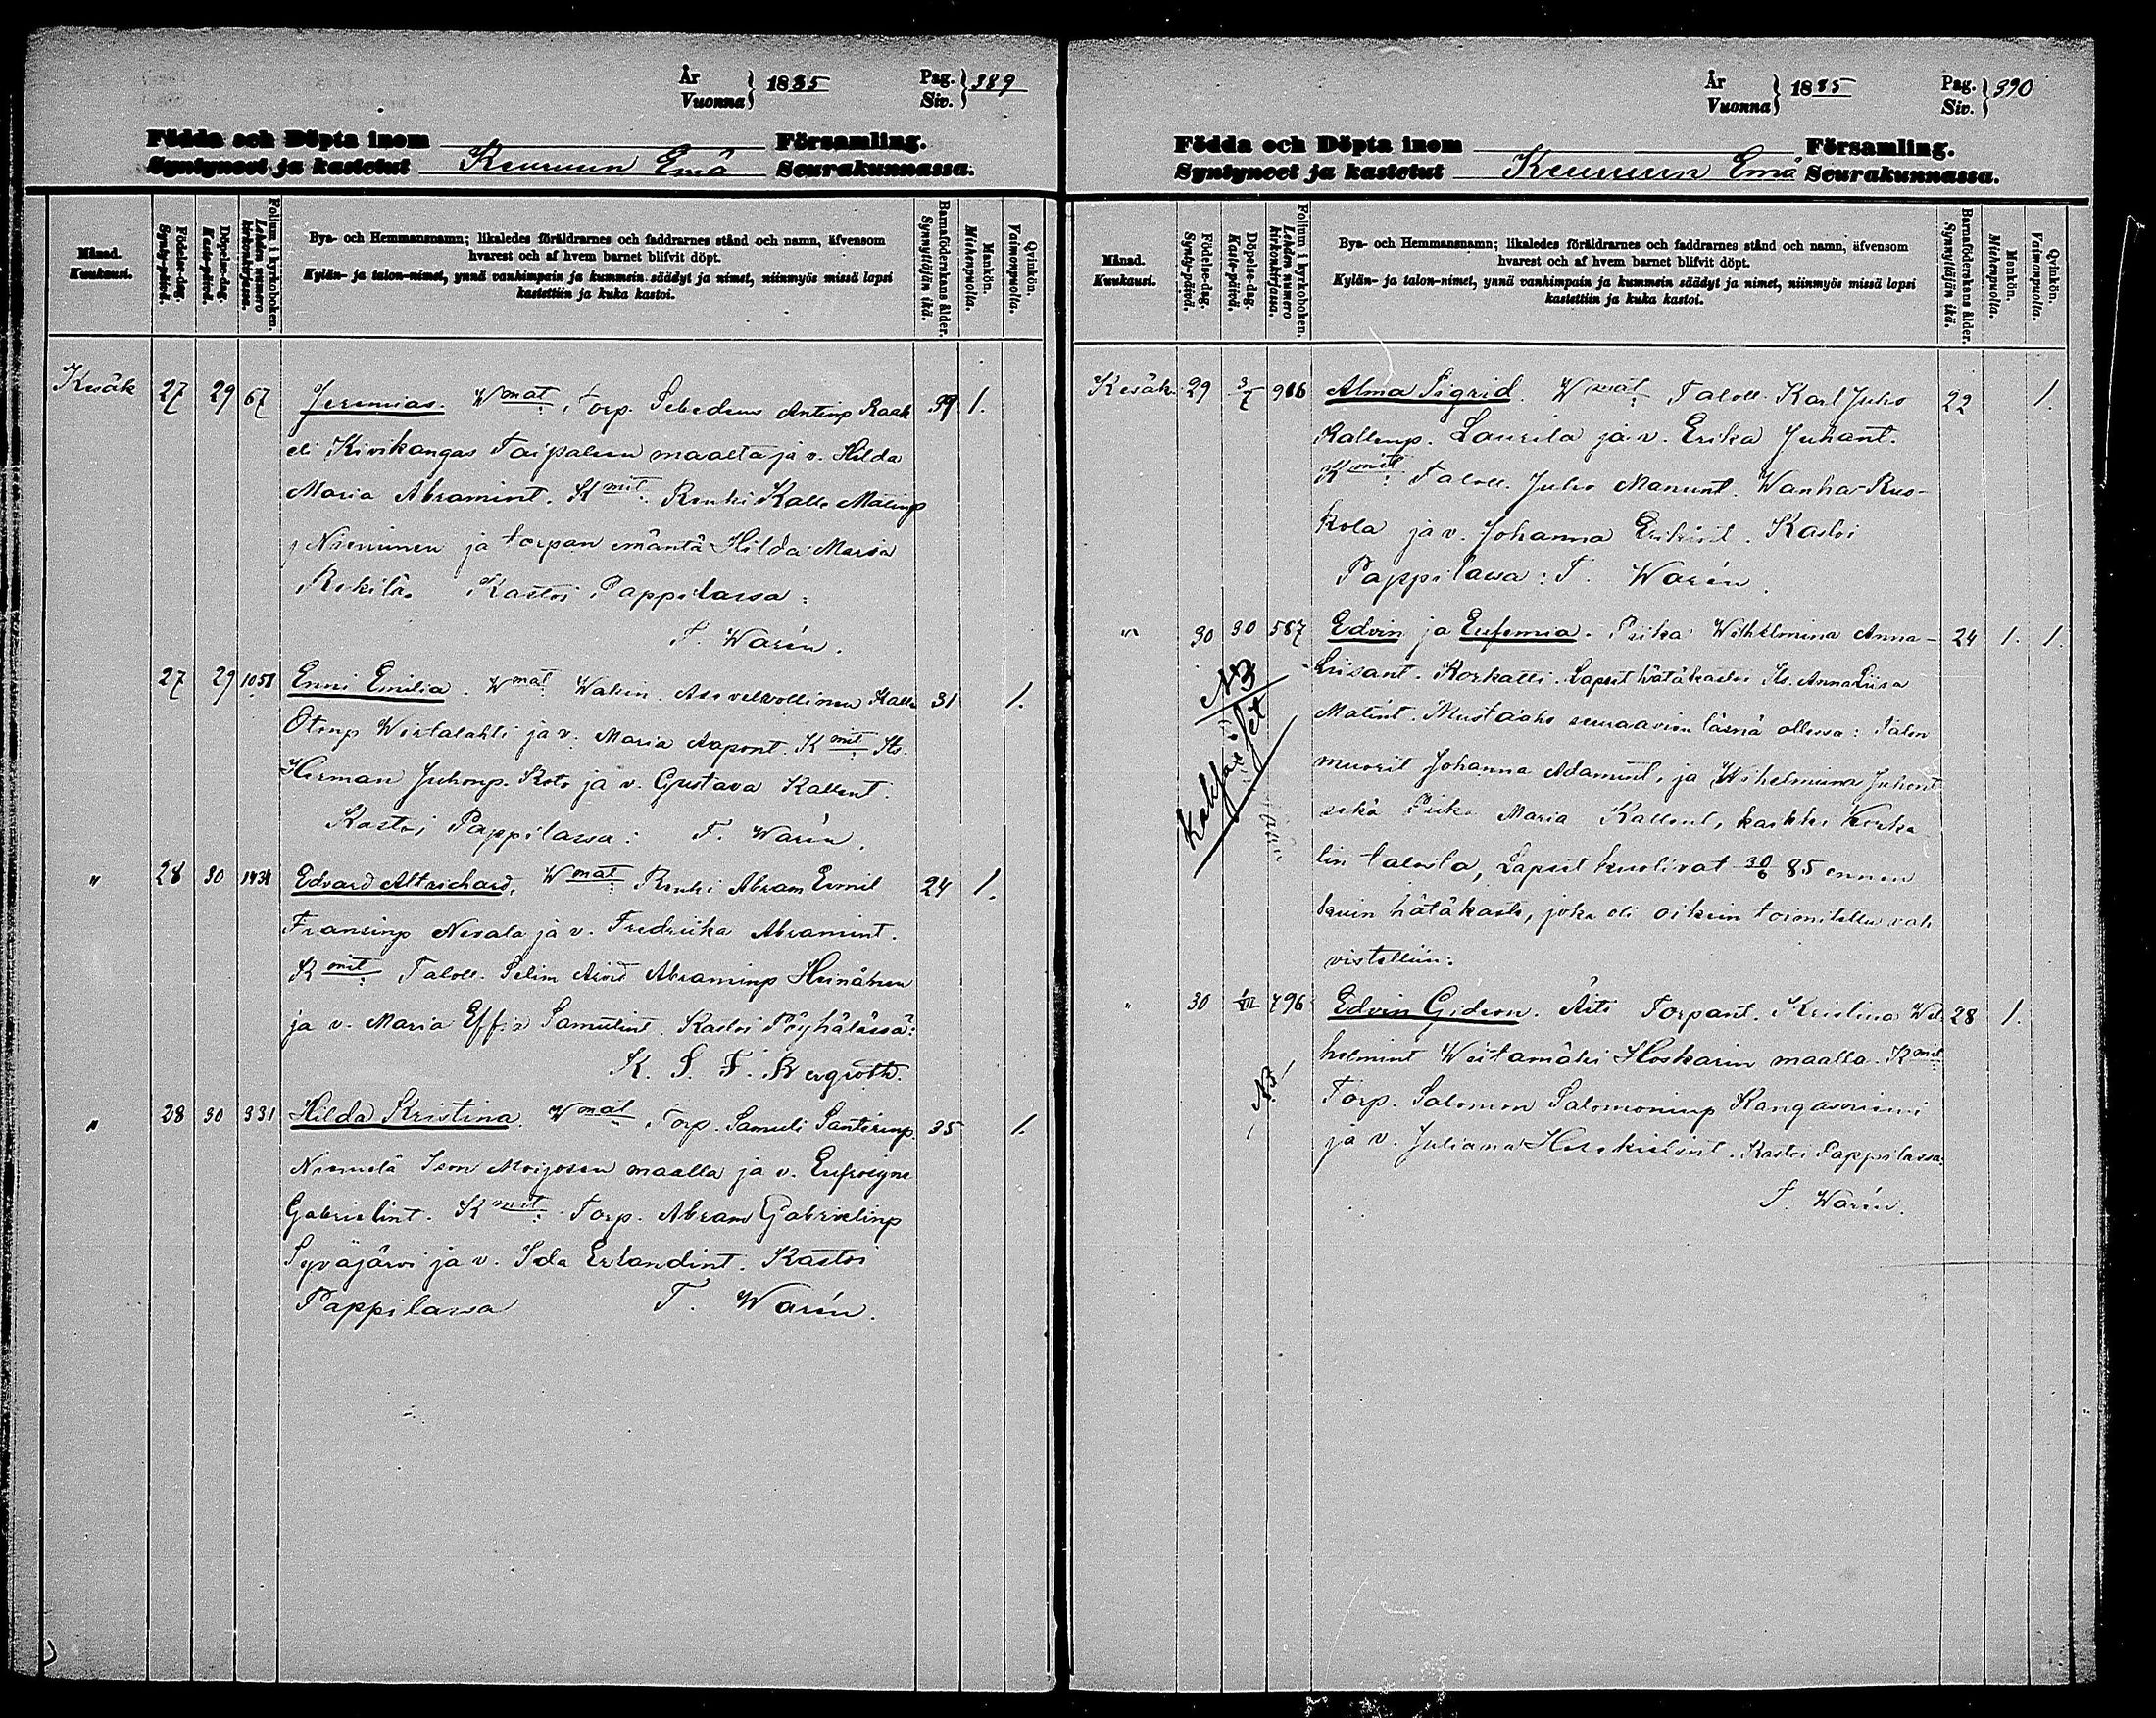 År
Vuonna } 1885 Pag.
Siv. } 389
Födda och Döpta inom Församling.
Syntyneet ja kastetut Keuruun Emä Seurakunnassa.
Månad.
Kuukausi.
Födelse-dag.
Synty-päivä.
Döpelse-dag.
Kaste-päivä.
Folium i kyrkoboken.
Lehden numero
kirkonkirjassa.
Bya- och Hemmansnamn; likaledes föräldrarnes och faddrarnes stånd och namn, äfvensom
hvarest och af hvem barnet blifvit döpt.
Kylän- ja talon-nimet, ynnä vanhimpain ja kummein säädyt ja nimet, niinmyös missä lapsi
kastettiin ja kuka kastoi.
Barnaföderskans ålder.
Synnyttäjän ikä.
Mankön.
Miehenpuolia.
Qvinkön.
Vaimonpuolia.
Kesäk 27 29 67 Jeremias. Wmat. Torp. Sebedeus Antinp Raak 39 1.
eli Kivikangas Taipaleen maalta ja v. Hilda
Maria Abramint. Kmit. Renki Kalle Matinp
Nieminen ja torpan emäntä Hilda Maria
Kastoi Pappilassa:
T. Warén.
27 29 1051 Enni Emilia. Wmat. Wakin. Asevelwollinen Kalle 31 1.
Otonp Wirtalahti ja v. Maria Aapont. Kmit. Its.
Herman Juhonp. Koto ja v. Gustava Kallent.
Kastoi Pappilassa: T. Warén.
" 28 30 1434 Edvard Altrichard. Wmat. Renki Abram Eemil 24 1.
Fransinp Nevala ja v. Fredriika Abramint.
Kmit. Taloll. Selim Arvid Abraminp Heinänen
ja v. Maria Effia Samulint. Kastoi Pöyhölässä:
K. S. F. Bergroth.
" 28 30 331 Hilda Kristina. Wmat. Torp. Samuli Santerinp. 35 1.
Niemelä Ison maalla ja v. Eufrosyne
Gabrielint. Kmit. Torp. Abram Gabrielinp
Syväjärvi ja v. Ida Erlandint. Kastoi
Pappilassa T. Warén.
År
Vuonna } 1885 Pag.
Siv. } 390
Födda och Döpta inom Församling.
Syntyneet ja kastetut Keuruun Emä Seurakunnassa.
Månad.
Kuukausi.
Födelse-dag.
Synty-päivä.
Döpelse-dag.
Kaste-päivä.
Folium i kyrkoboken.
Lehden numero
kirkonkirjassa.
Bya- och Hemmansnamn; likaledes föräldrarnes och faddrarnes stånd och namn, äfvensom
hvarest och af hvem barnet blifvit döpt.
Kylän- ja talon-nimet, ynnä vanhimpain ja kummein säädyt ja nimet, niinmyös missä lapsi
kastettiin ja kuka kastoi.
Barnaföderskans ålder.
Synnyttäjän ikä.
Mankön.
Miehenpuolia.
Qvinkön.
Vaimonpuolia.
Kesäk. 29 3/7 966 Alma Sigrid. Wmat. Taloll. Karl Juho 22 1.
Kallenp. Laurila ja v. Erika Juhant.
Kmit. Taloll. Juho Manunt. Wanha-Ruo-
kola ja v. Johanna Erikint. Kastoi
Pappilassa: T. Warén.
" 30 30 587 Edvin ja Eufemia. Piika Wilhelmina Anna- 24 1. 1.
Liisant. Korkatti. Lapset hätäkastoi Its. Anna Liisa
Matint. Mustaaho seuraavien läsnä ollessa: Talon
muorit Johanna Adamint. ja Wilhelmina Juhont
sekä Piika Maria Kallent, kaikki Korka-
tin talosta, Lapset kuolivat 30/6 85 ennen
kuin hätäkaste, joka oli oikein toimitettu vah
vistettiin:
NB
Kaksoiset
" 30 1/VII 796 Edvin Gideon. Äiti Torpant. Kristina Wil- 28 1.
helmint Westamäki Hoskarin maalla. Kmit.
NB!
Torp. Salomon Salomoninp Kangasniemi
ja v. Juliana Hesekielint. Kastoi Pappilassa:
T. Warén.